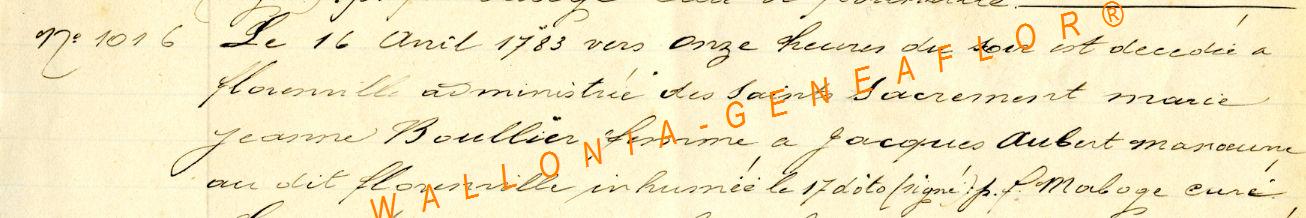 Nº 1016 Le 16 Avril 1783 vers onze heures du soir est decedée a
florenville administrée des Saints Sacrement marie
jeanne Boullier femme a Jacques Aubert
au dit florenville inhumée le 17 dito (signé) p. f. Maboge curé
WALLONIA-GENEAFLOR®